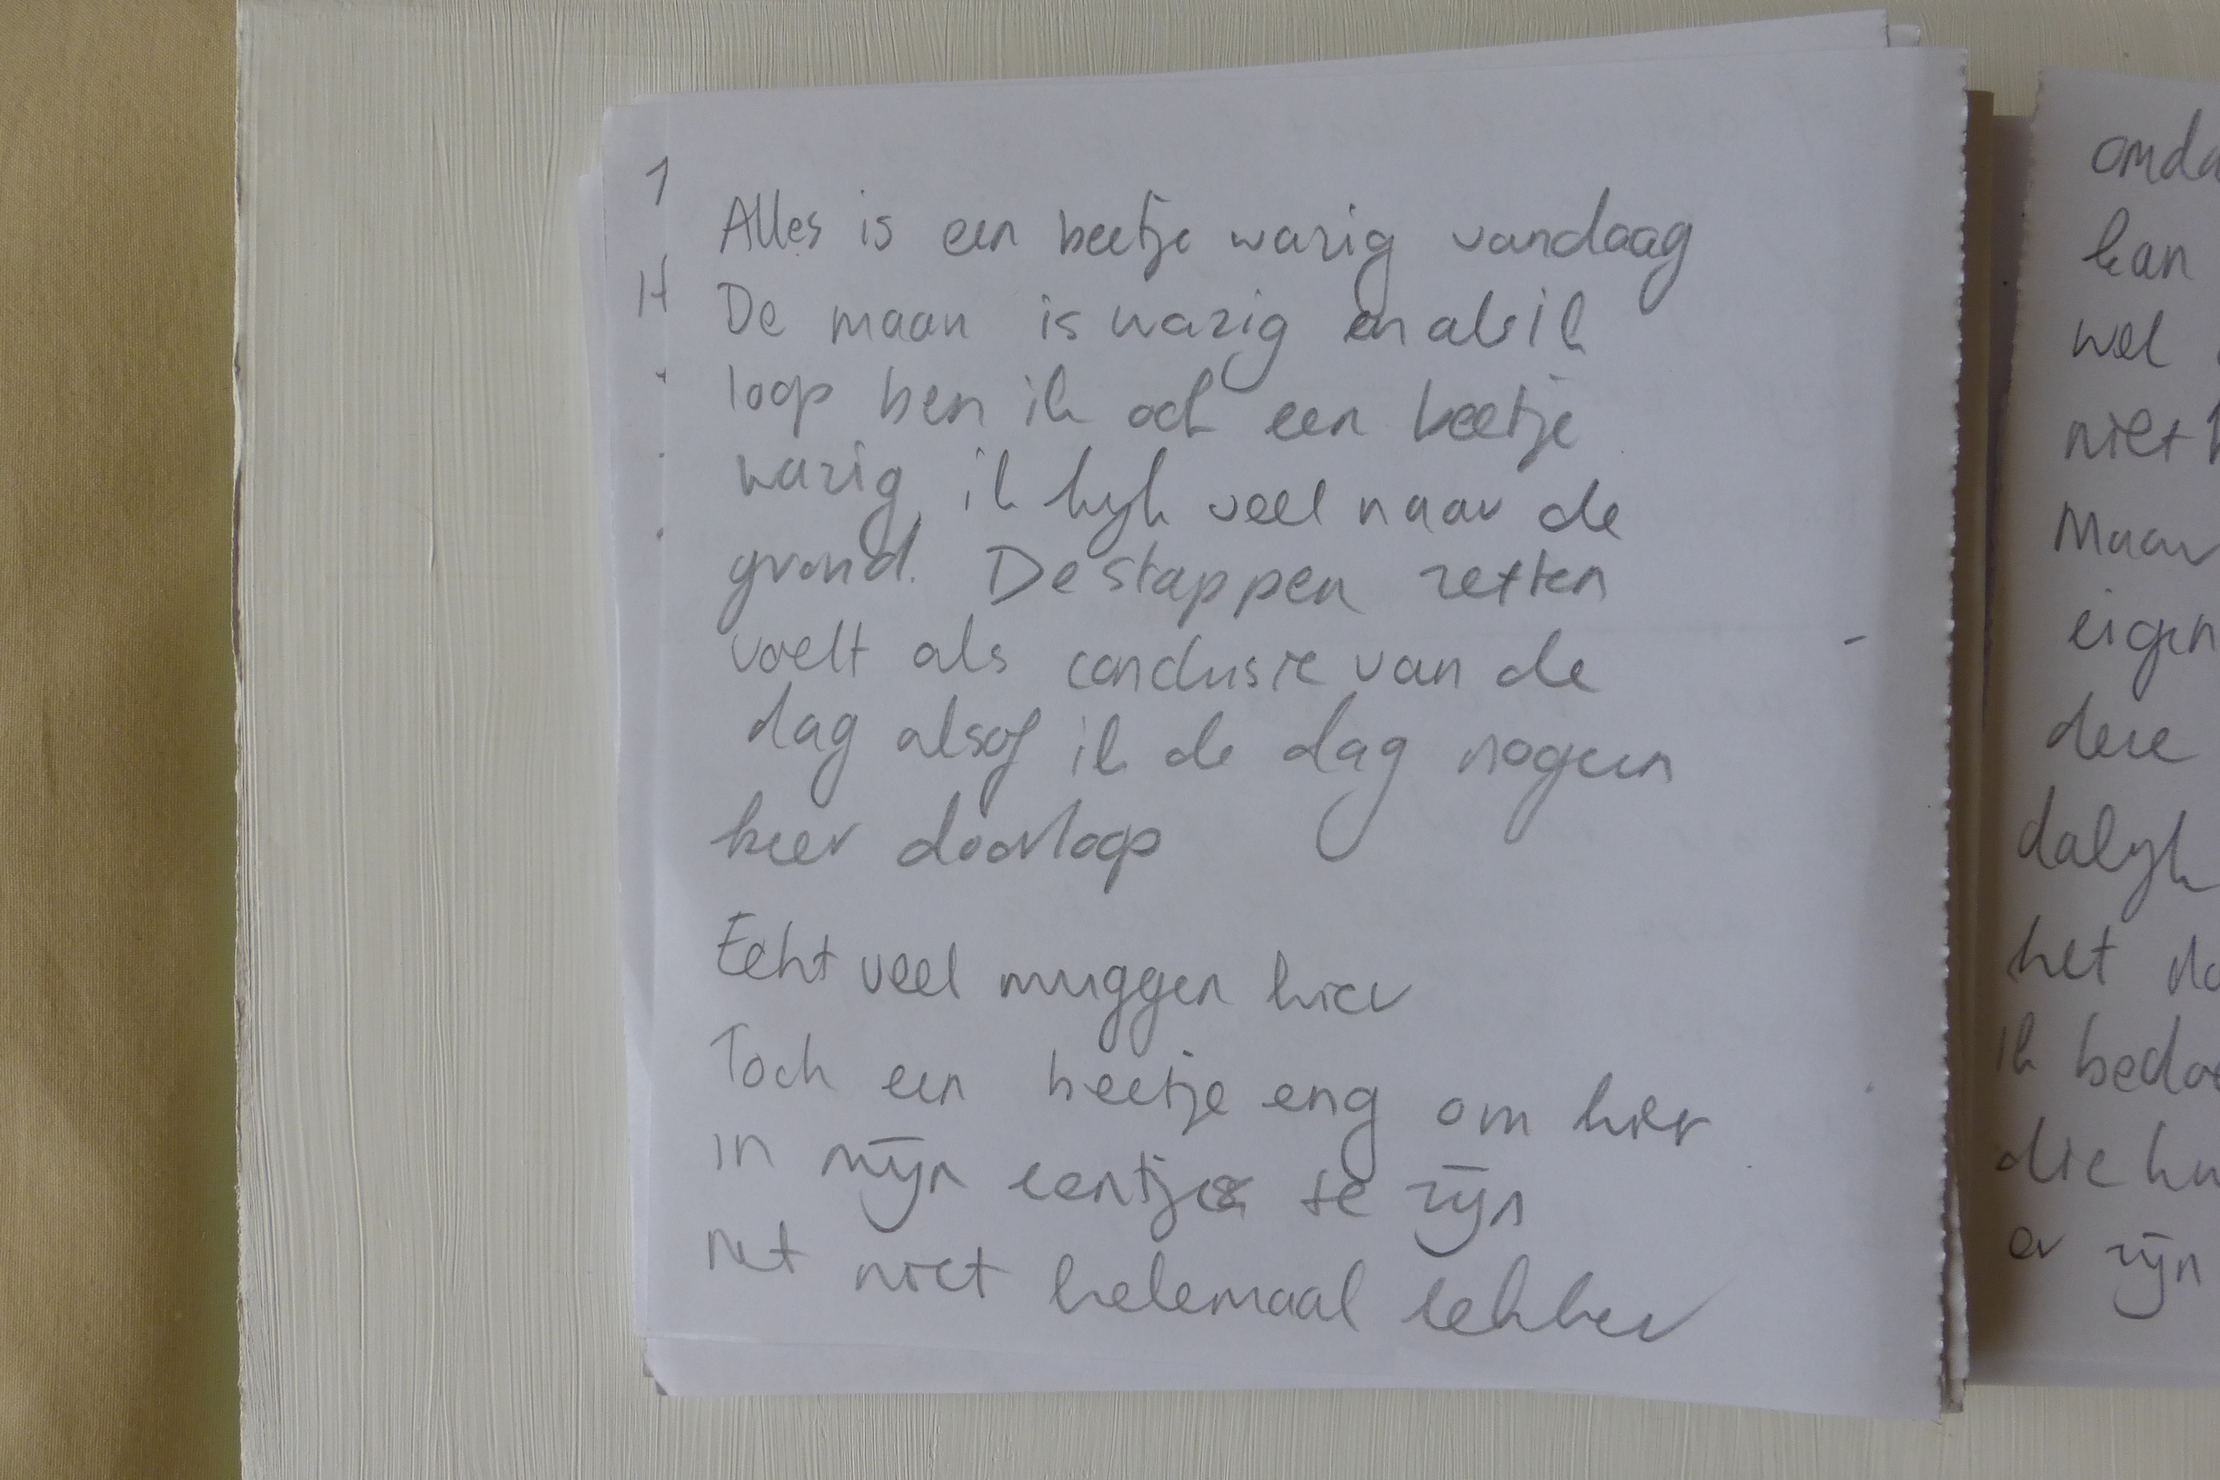 Alles is een beetje wazig vandaag
De maan is wazig en als ik
loop ben ik ook een beetje
wazig, ik kijk veel naar de
grond. De stappen zetten
voelt als conclusie van de
dag alsof ik de dag nog een
keer doorloop
Echt veel muggen hier
Toch een beetje eng om hier
in mijn eentje te zijn
net niet helemaal lekker
kan
wel
niet
Maar
eigen
deze
dalijk
het
ik
die
er zijn